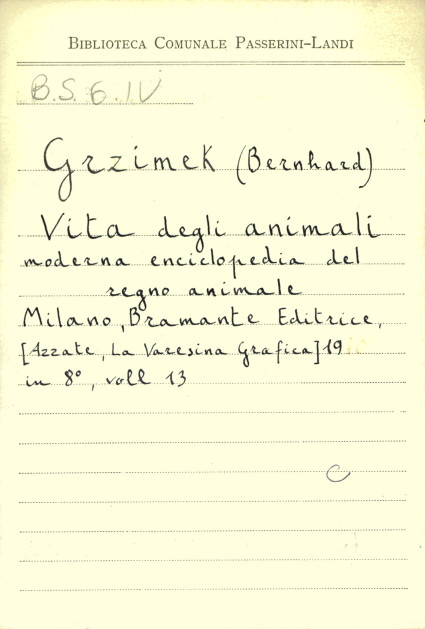 BIBLIOTECA COMUNALE PASSERINI-LANDI
B.S. 6. IV
Grzimek (Bernhard)
Vita degli animali
moderna enciclopedia del
regno animale
Milano, Bramante Editrice,
[Azzate, La Varesina Grafica] 19
in 8°, voll 13
C